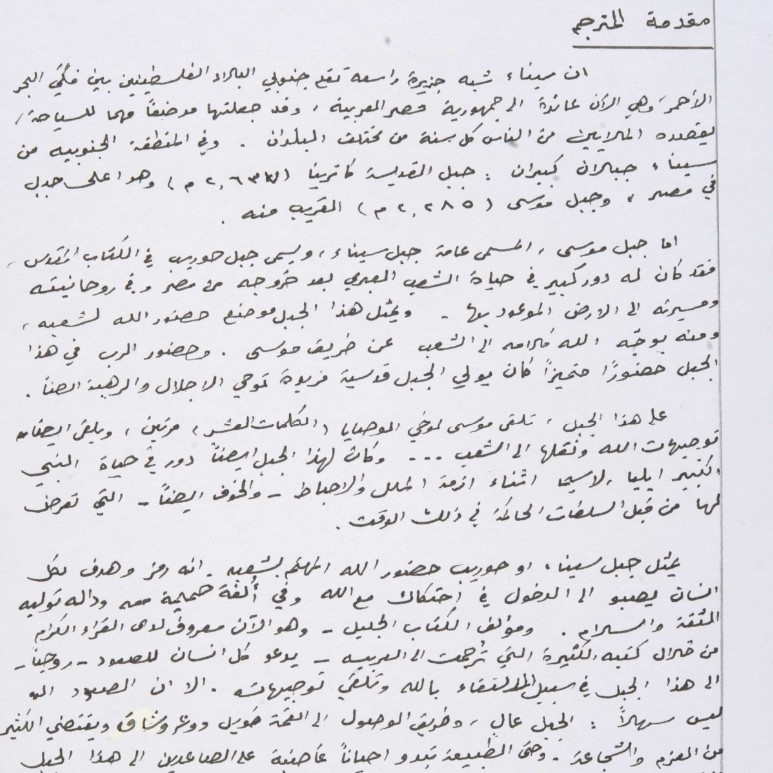 مقدمة المترجم
ان سيناء شبه جزيرة واسعة تقع جنوبي البلاد الفلسطينيين بين فكّي البحر
الأحمر، وهي الآن عائدة الى جمهورية مصر العربية، وقد جعلتها موضعًا مهما للسياحة،
يقصده الملايين من الناس كل سنة من مختلف البلدان. وفي المنطقة الجنوبيه من
سيناء جبلان كبيران: جبل القديسة كاترينا (٢,٦٣٧ م) وهو اعلى جبل
في مصر، وجبل موسى (٢,٢٨٥ م) القريب منه.
اما جبل موسى، المسمى عامة جبل سيناء، ويسمى جبل حوريب في الكتاب المقدس،
فقد كان له دور كبير في حياة الشعب العبري بعد خروجه من مصر وفي روحانيته
ومسيرته الى الارض الموعود بها. ويمثل هذا الجبل موضع حضور الله لشعبه،
ومنه يوجّه الله كلامه الى الشعب عن طريق موسى. وحضور الرب في هذا
الجبل حضورًا متميزاً كان يولي الجبل قدسية فريدة توحي الاجلال والرهبة ايضاً.
على هذا الجبل، تلقى موسى لوحَي الوصايا (الكلمات العشر) مرتين، وتلقى ايضاً
توجيهات الله ونقلها الى الشعب ... وكان لهذا الجبل ايضاً دور في حياة النبي
الكبير ايليا، لاسيما اثناء ازمة الملل والاحباط - والخوف ايضاً - التي تعرض
لها من قبل السلطات الحاكمة في ذلك الوقت.
يمثل جبل سيناء او حوريب حضور الله المهتم بشعبه. انه رمز وهدف لكل
انسان يصبو الى الدخول في احتكاك مع الله وفي أُلفة حميمة معه ودالة توليه
الثقة والسلام. ومؤلف الكتاب الجليل - وهو الآن معروف لدى القراء الكرام
من خلال كتبه الكثيرة التي تُرجمت الى العربيه - يدعو كل انسان للصعود - روحياً -
الى هذا الجبل في سبيل الالتقاء بالله وتلقي توجيهاته. الا ان الصعود اليه
ليس سهلاً: الجبل عالٍ، وطريق الوصول الى القمة طويل ووعر وشاق ويقتضي الكثير
من العزم والشجاعة. وحتى الطبيعة تبدو احياناً غاضبة على الصاعدين الى هذا الجبل